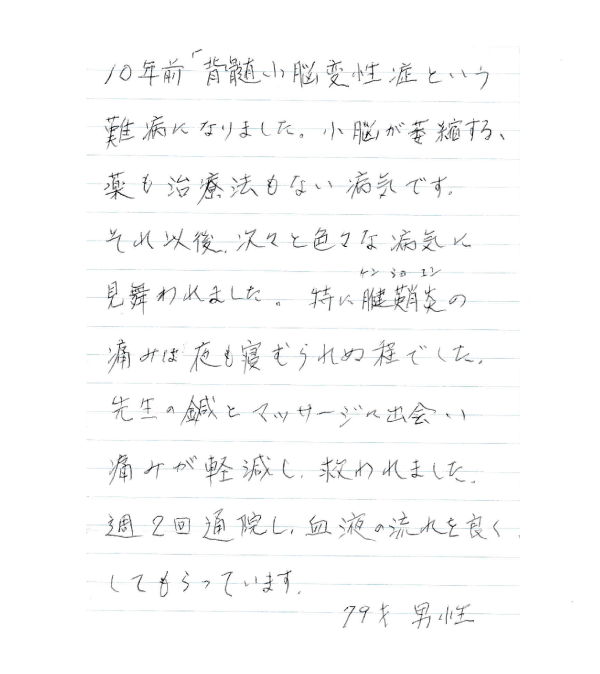 10年前「脊髄小脳変性症という
難病になりました。小脳が萎縮する、
薬も治療法もない病気です。
それ以後、次々と色々な病気に
ケン ショ エン
見舞われました。特に腱鞘炎の
痛みは夜も寝むられぬ程でした。
先生の鍼とマッサージに出会い
痛みが軽減し、救われました。
週2回通院し、血液の流れを良く
してもらっています。
79才 男性